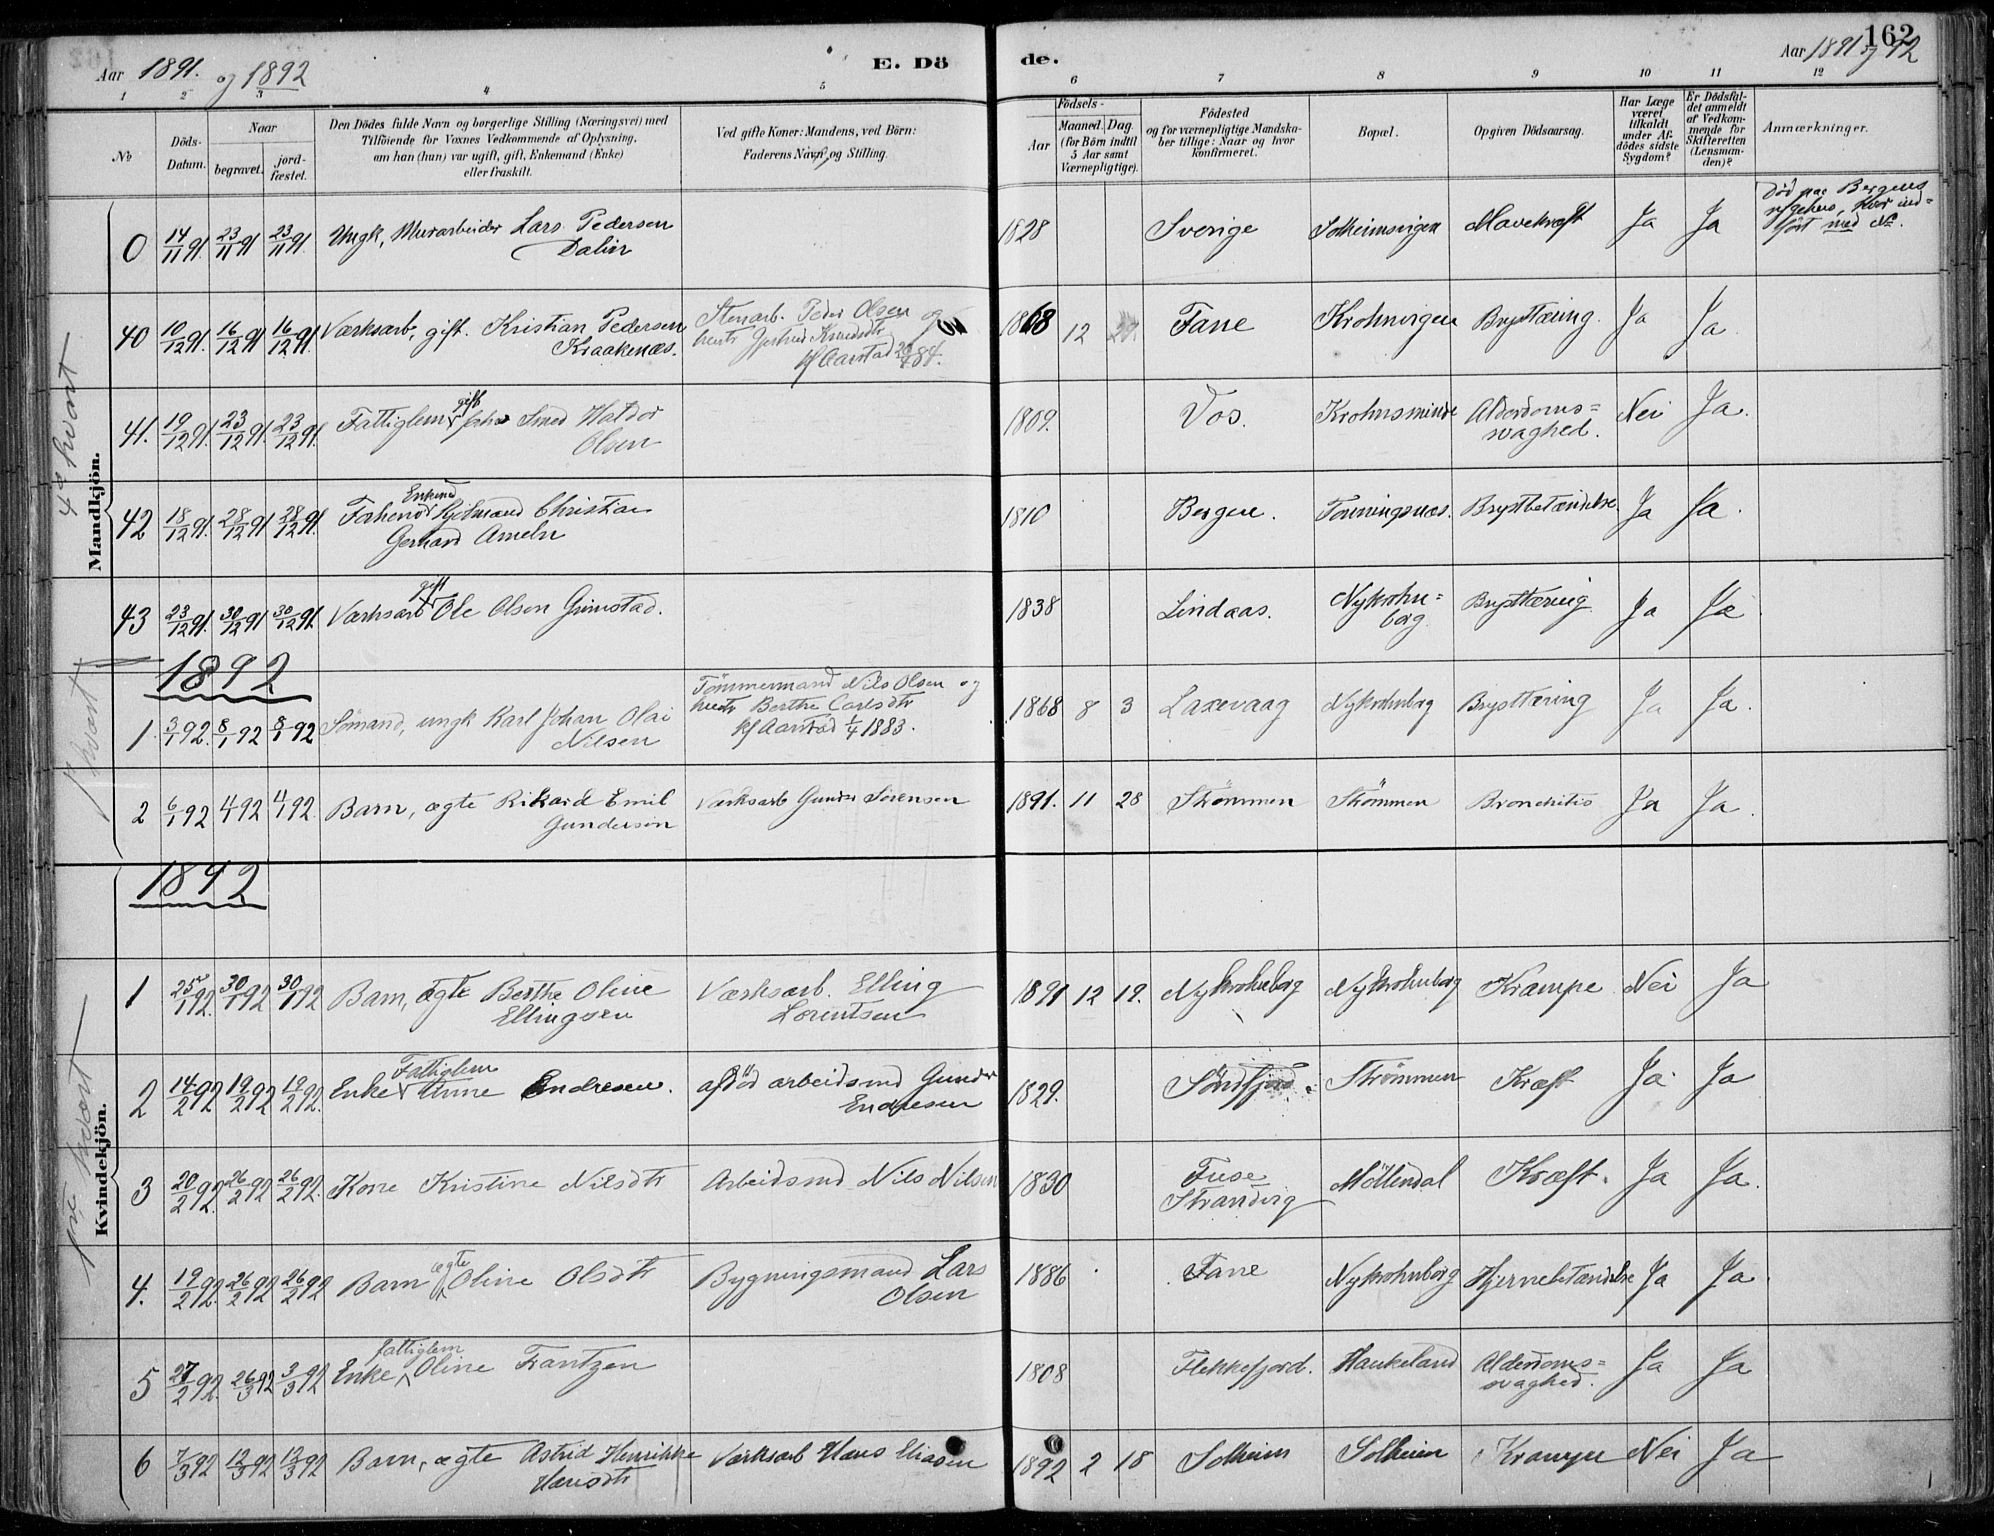 162
Aar 1891. og 1892
E. Dö
de.
Aar 1891 og 92
1 2 3 4 5 6 7 8 9 10 11 12
No
Döds-Datum.
Naar
begravet.
jord-fæstet.
Den Dödes fulde Navn og borgerlige Stilling (Næringsvei) med
Tilföiende for Voxnes Vedkommende af Oplysning,
om han (hun) var ugift, gift, Enkemand (Enke)
eller fraskilt.
Ved gifte Koner: Mandens, ved Börn:
Faderens Navn og Stilling.
Födsels-
Aar
Maaned. Dag.
(for Börn indtil
5 Aar samt
Værnepligtige).
Födested
og for værnepligtige Mandska-
ber tillige: Naar og hvor
konfirmeret.
Bopæl.
Opgiven Dödsaarsag.
Har Læge
været
tilkaldt
under Af-
dödes sidste
Sygdom?
Er Dödsfal-
det anmeldt
af Vedkom-
mende for
Skifteretten
(Lensman-
den)?
Anmærkninger.
Mandkjön.
4de kvart
0 14/11 91. 23/11 91 23/11 91. Ungk, Murarbeider Lars Pedersen
Dalin
1828 Sverige Solheimsvigen Mavekræft Ja Ja
Död paa Bergens
sygehus, hvor ind-
fört med No.
40 10/12 91. 16/12 91 16/12 91. Værksarb, gift. Kristian Pedersen
Kraakenæs.
Stenarb. Peder Olsen og
hustr Gjertrud Knudsdtr
kf Aarstad 84.
1868 12 Fane Krohnvigen Brysttæring. Ja Ja.
41. 19/12 91. 23/12 91. 23/12 91. Fattiglem gift forhv Smed Haldor
Olsen
1809. Vos. Krohnsminde Alderdoms=
svaghed. Nei Ja.
42 18/12 91. 28/12 91 28/12 91. Forhenv Enkemd Kjøbmand Christian
Gerhard Ameln
1810 Bergen. Forningsnæs. Brystbetændelse Ja Ja.
43 23/12 91. 30/12 91 30/12 91. Værksarb gift Ole Olson Grimstad.
1838 Lindaas. Nykrohn=
borg Brysttæring Ja Ja
1892
1ste kvart
1. 3/1 92. 8/1 92 8/1 92 Sömand, ungk Karl Johan Olai
Nilsen
Tömmermand Nils Olsen og
hustr Berthe Carlsdtr
kf Aarstad 1/4 1883.
1868 8 3 Laxevaag Nykrohnborg Brysttæring Ja Ja.
2 6/1 92 4 92 4/1 92. Barn, ægte Rikard Emil
Gunderson
Værksarb Gunder Sörensen
1891. 11 28 Strömmen Strömmen Bronchitis Ja Ja.
1892
Kvindekjön.
1ste kvart
1 25/1 92. 30/1 92 30/1 92 Barn, ægte Berthe Oline
Ellingsen
Værksarb. Elling
Lorentsen
1891 12 19. Nykrohnborg Nykrohnborg Krampe Nei Ja
2 14/2 92 19/2 92 19/2 92. Enke Fattiglem Anne Endresen.
afdöd arbeidsmd Gunder
Endresen
1829. Söndfjord. Strömmen Kræft Ja Ja
3 20/2 92. 26/2 92 26/2 92. Kone Kristine Nilsdtr
Arbeidsmd Nils Nilsen
1830 Fuse
Strandvig Möllendal Kræft. Ja Ja.
4. 19/2 92. 26/2 92 26/2 92 Barn ægte Oline Olsdtr
Bygningsmand Lars
Olsen
1886 Fane Nykrohnborg Hjernebetændelse Ja Ja.
5 27/2 92. 26/3 92 3/3 92 Enke fattiglem Oline Frantzen
1808 Flekkefjord. Haukeland Alderdoms=
svaghed. Ja Ja
6 7/3 92 12/3 92 12/3 92 Barn, ægte Astrid Henrikke
Hansdtr
Værksarb Hans Eliasen
1892 2 18 Solheim Solheim Krampe Nei Ja